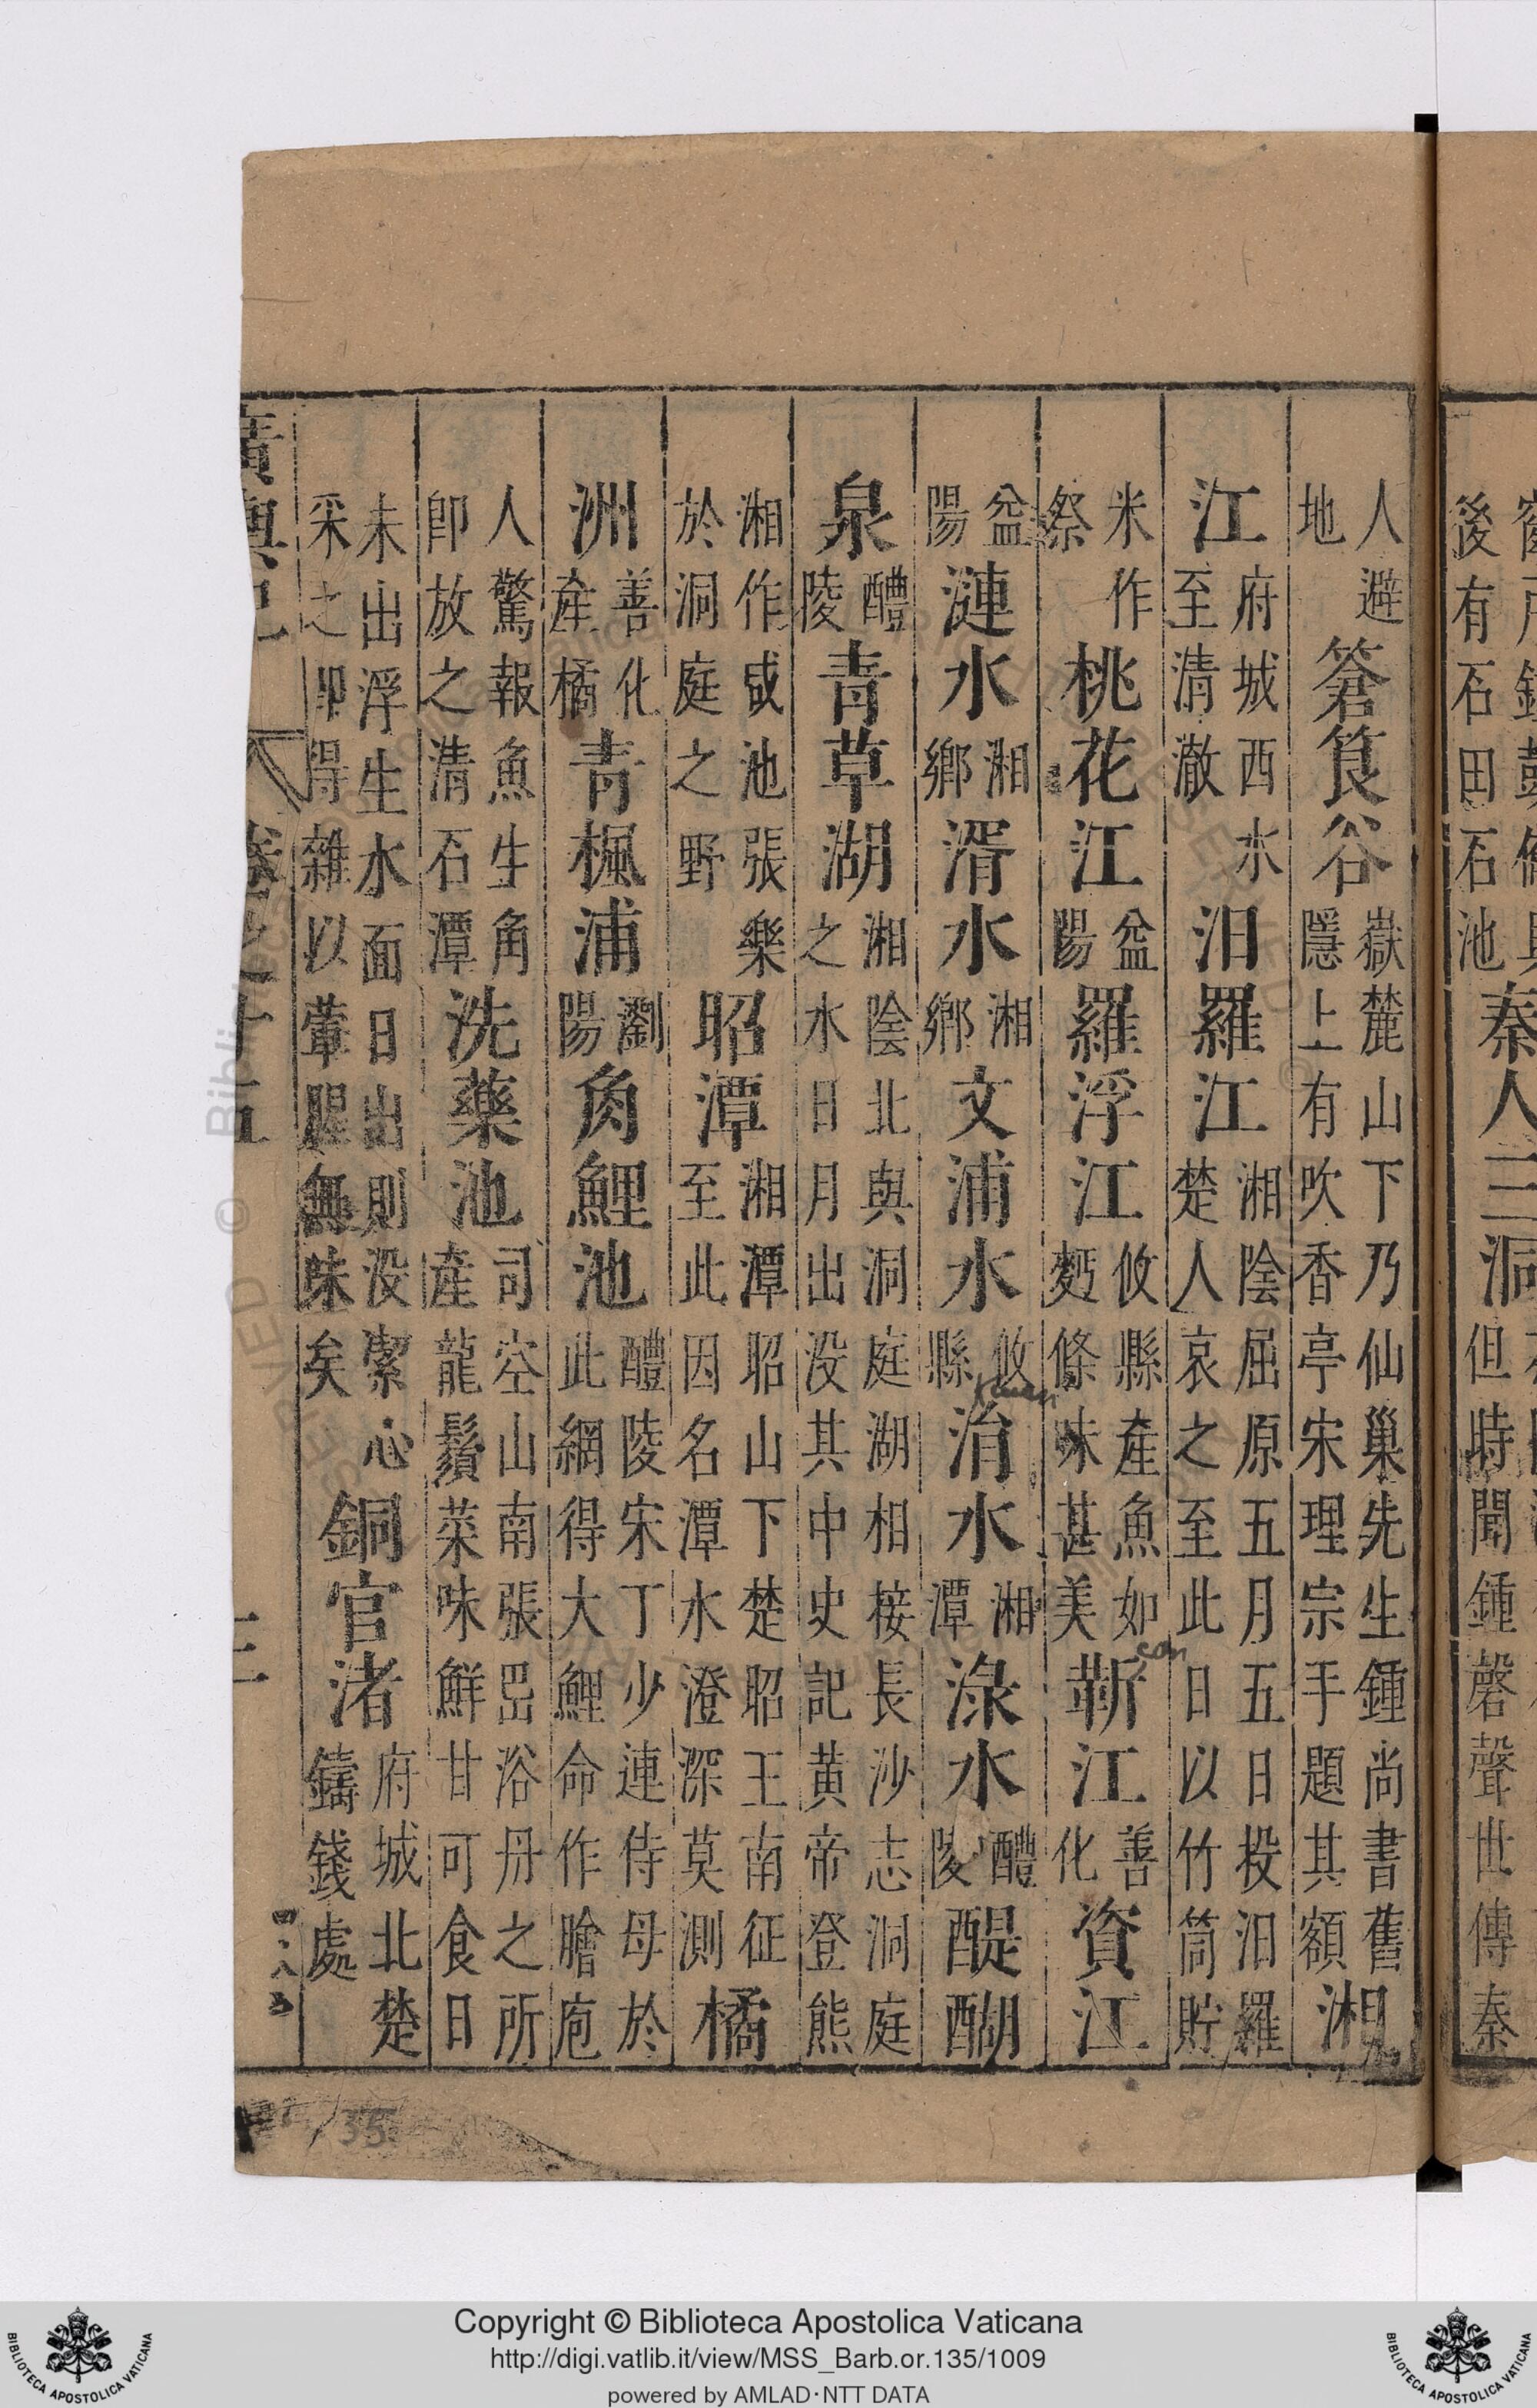 後有石田石池秦人三洞但時聞鍾磬聲世傳秦
人避地篬筤谷嶽麓山下乃仙巢先生鍾尚書舊隱上有吹香亭宋理宗手題其額湘
江府城西水至清澈汨羅江湘陰屈原五月五日投汨羅楚人哀之至此日以竹筒貯
米作祭桃花江益陽羅浮江攸縣產魚如麪條味甚美靳江善化資江
益陽漣水湘鄉湑水湘鄉文浦水攸縣涓水湘潭淥水醴陵醍醐
泉醴陵青草湖湘陰北與洞庭湖相接長沙志洞庭之水日月出没其中史記黄帝登熊
湘作咸池張樂於洞庭之野昭潭湘潭昭山下楚昭王南征至此因名潭水澄深莫測橘
洲善化產橘青楓浦瀏陽角鯉池醴陵宋丁少連侍母於此網得大鯉命作膾庖
人驚報魚生角卽放之清石潭洗藥池司空山南張岊浴丹之所產龍鬚菜味鮮甘可食日
未出浮生水面日出則没潔心采之卽得雜以葷腥無味矣銅官渚府城北楚鑄錢處
廣輿記 卷之十五
35
Copyright © Biblioteca Apostolica Vaticana
http://digi.vatlib.it/view/MSS_Barb.or.135/1009
powered by AMLAD·NTT DATA